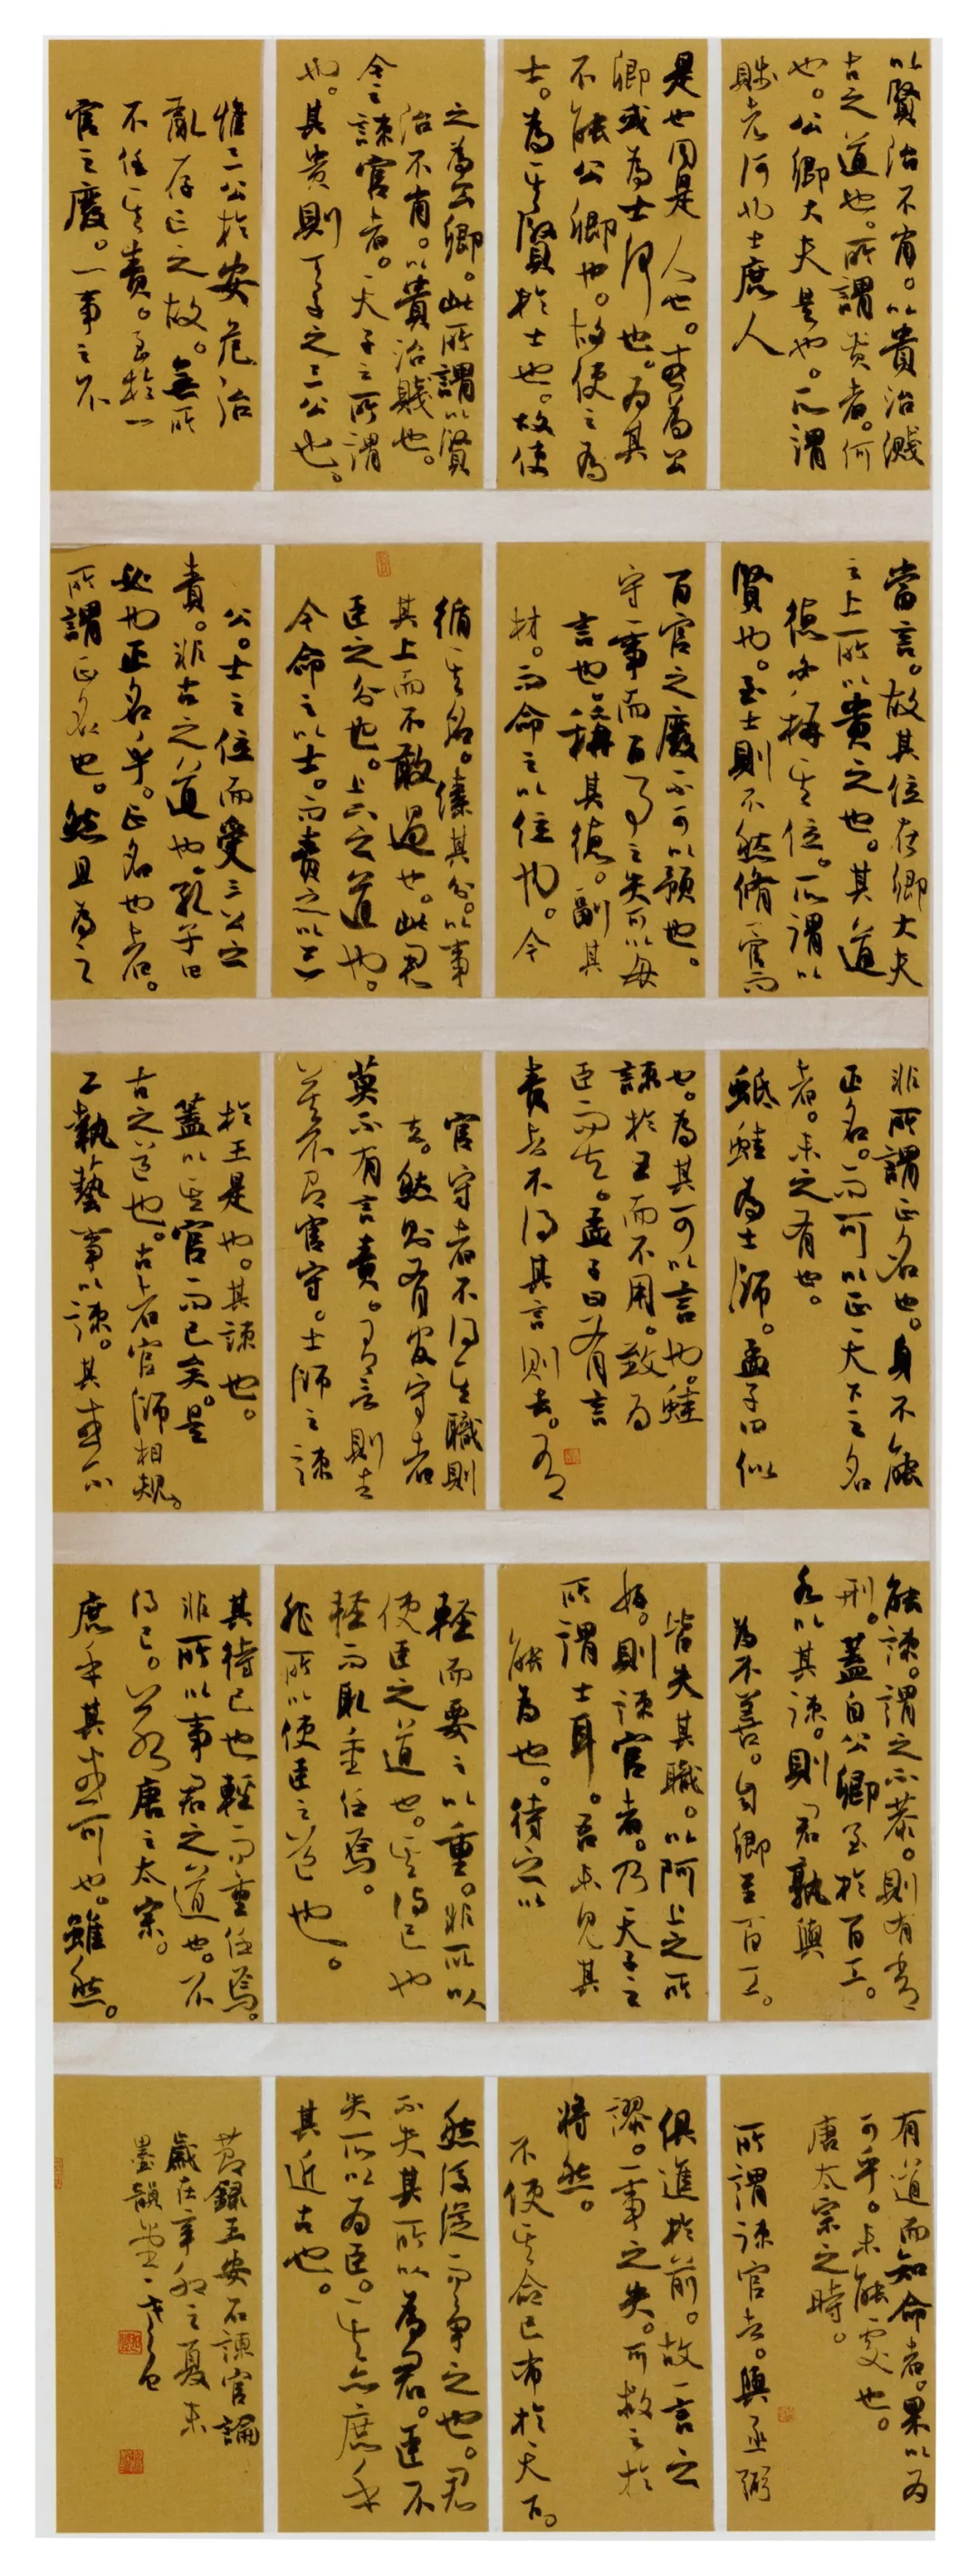 以賢治不肖。以貴治賤
古之道也。所謂貴者。何
也。公卿大夫是也。所謂
賤者何也士庶人
是也同是人也。或為公
卿或為士何也。為其
不能公卿也。故使之為
士。為其賢於士也。故使
之為公卿。此所謂以賢
治不肖。以貴治賤也。
今之諫官者。天子之所謂
也。其貴則天子之三公也。
惟三公於安危治
亂存亡之故。無所
不任其責。至於一
官之廢。一事之不
當言。故其位在卿大夫
之上所以貴之也。其道
德必稱其位。所謂以
賢也。至士則不然脩一官而
百官之廢不可以預也。
守一事而百事之失可以毋
言也。稱其德。副其
材。而命之以位也。今
循其名。傃其分。以事
其上而不敢過也。此君
臣之分也。上下之道也。
今命之以士。而責之以三
公。士之位而受三公之
責。非古之道也。孔子曰
必也正名乎。正名也者。
所謂正名也。然且為之
非所謂正名也。身不能
正名。而可以正天下之名
者。未之有也。
蚳蛙為士師。孟子曰似
也。為其可以言也。蛙
諫於王而不用。致為
臣而去。孟子曰有言
責者不得其言則去。有
官守者不得其職則
去。然則有官守者
莫不有言責。有言則去
莫不有官守。士師之諫
於王是也。其諫也。
蓋以其官而已矣。是
古之道也。古者官師相規。
工執藝事以諫。其或不
能諫。謂之不恭。則有常
刑。蓋自公卿至於百工。
各以其諫。則君孰與
為不善。自卿至百工。
皆失其職。以阿上之所
好。則諫官者。乃天子之
所謂士耳。吾未見其
能為也。待之以
輕而要之以重。非所以
使臣之道也。其待已也
輕而取重任焉。
非所以使臣之道也。
其待已也輕而重任焉。
非所以事君之道也。不
得已。若唐之太宗。
庶乎其或可也。雖然。
有道而知命者。果以為
可乎。未能處也。
唐太宗之時。
所謂諫官者。與丞弼
俱進於前。故一言之
謬。一事之失。可救之於
將然。
不使其命已布於天下。
然後從而爭之也。君
不失其所以為君。臣不
失所以為臣。其亦庶乎
其近古也。
節錄王安石諫官論
歲在辛卯之夏末
墨韻堂